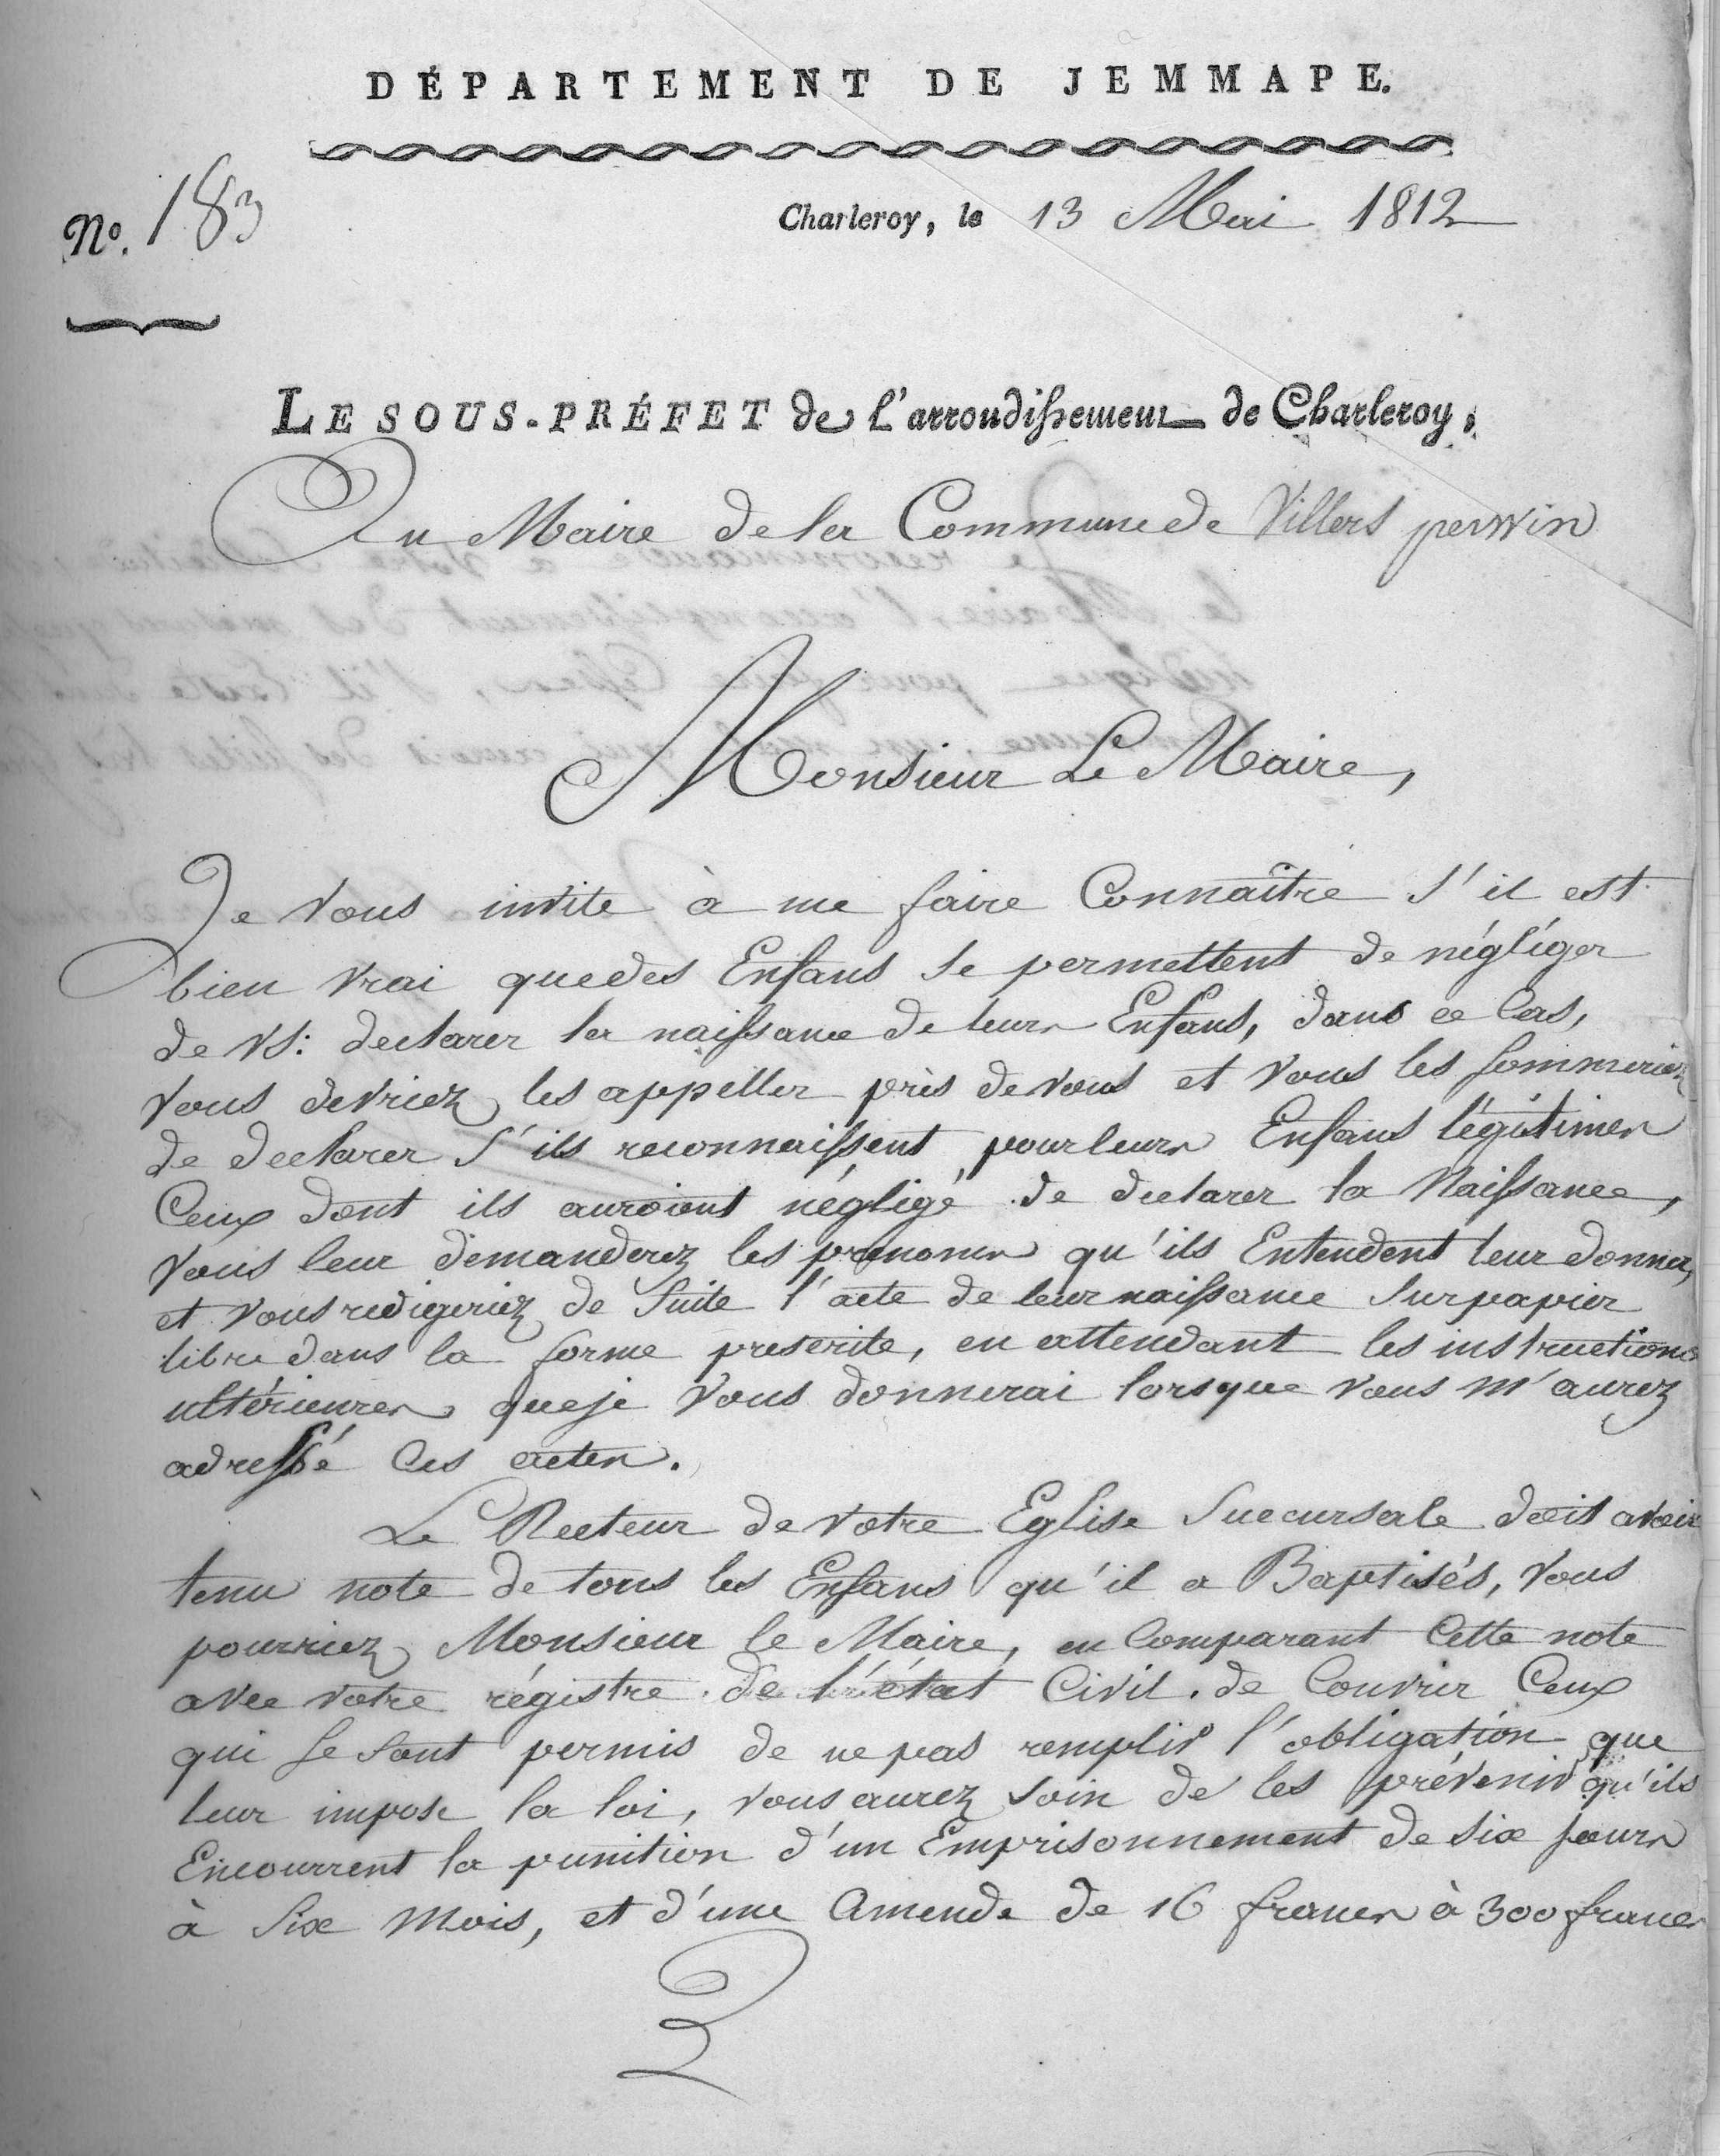 DÉPARTEMENT DE JEMMAPE.
N.º 183
Charleroy, le 13 Mai 1812
LE SOUS-PRÉFET de l'arrondissement de Charleroy,
Au Maire de la Commune de Villers perwin
Monsieur Le Maire,
Je vous invite à me faire Connaître s'il est
bien vrai que des Enfans se permettent de négliger
de vs: declarer la naissance de leurs Enfans, dans ce Cas,
vous devriez les appeller près de vous et vous les sommeriez
de declarer s'ils reconnaissent pour leurs Enfans légitimes
Ceux dont ils auroient négligé de declarer la Naissance,
vous leur demanderez les prenoms qu'ils Entendent leur donner,
et vous redigeriez de suite l'acte de leur naissance sur papier
libre dans la forme prescrite, en attendant les instructions
ultérieures que je vous donnerai lorsque vous m'aurez
adressé Ces actes.
Le Recteur de votre Eglise Succursale doit avoir
tenu note de tous les Enfans qu'il a Baptisés, vous
pourriez Monsieur le Maire, en Comparant Cette note
avec votre régistre de l'état Civil. de Couvrir Ceux
qui se sont permis de ne pas remplir l'obligation que
leur impose la loi, vous aurez soin de les prévenir qu'ils
Encourrent la punition d'un Emprisonnement de six jours
à six mois, et d'une Amende de 16 francs à 300 francs